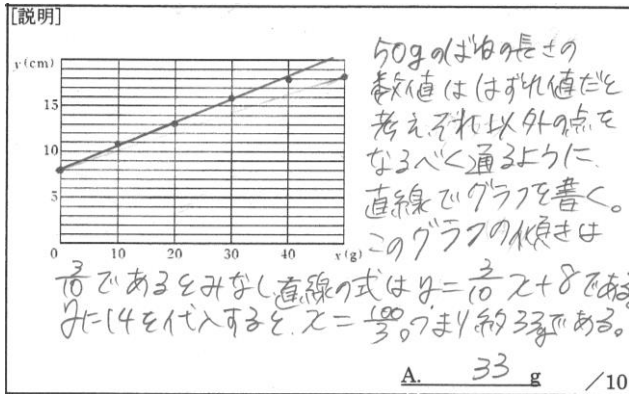 [説明]
y(cm)
15
10
5
0 10 20 30 40 x(g)
50gのばねの長さの
数値ははずれ値だと
考え、それ以外の点を
なるべく通るように、
直線でグラフを書く。
このグラフの傾きは
3/10であるとみなし直線の式はy=3/10x+8である。
yに14を代入すると、x=100/3。つまり約33gである。
A. 33 g /10